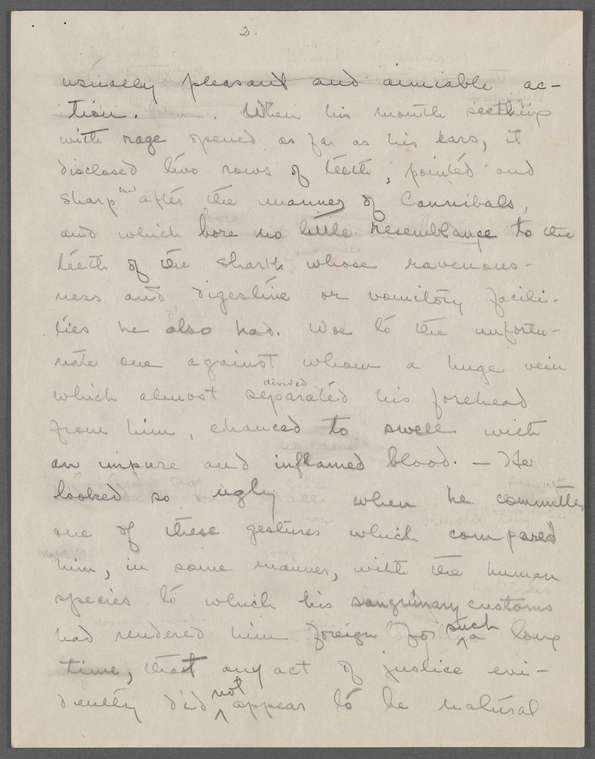 2.
usually pleasant and aimiable ac-
tion. When his mouth seething
with rage opened as far as his ears, it
disclosed two rows of teeth, pointed and
sharp after the manner of Cannibals,
and which bore no little resemblance to the
teeth of the shark whose ravenous-
ness and digestive or vomitory facili-
ties he also had. Woe to the unfortu-
nate one against whom a huge vein
divided
which almost separated his forehead
from him, chanced to swell with
an impure and inflamed blood. — He
looked so ugly when he committed
one of these gestures which compared
him, in some manner, with the human
species to which his sanguinary customs
had rendered him foreign for such a long
time, that any act of justice evi-
dently did not appear to be natural